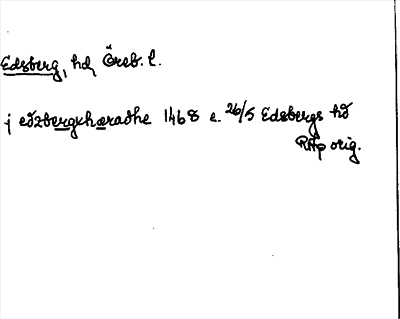 Edsberg, hd, Öreb. l.
j edzbergxhæradhe 1468 e. 26/5 Edsbergs hd
RAp orig.